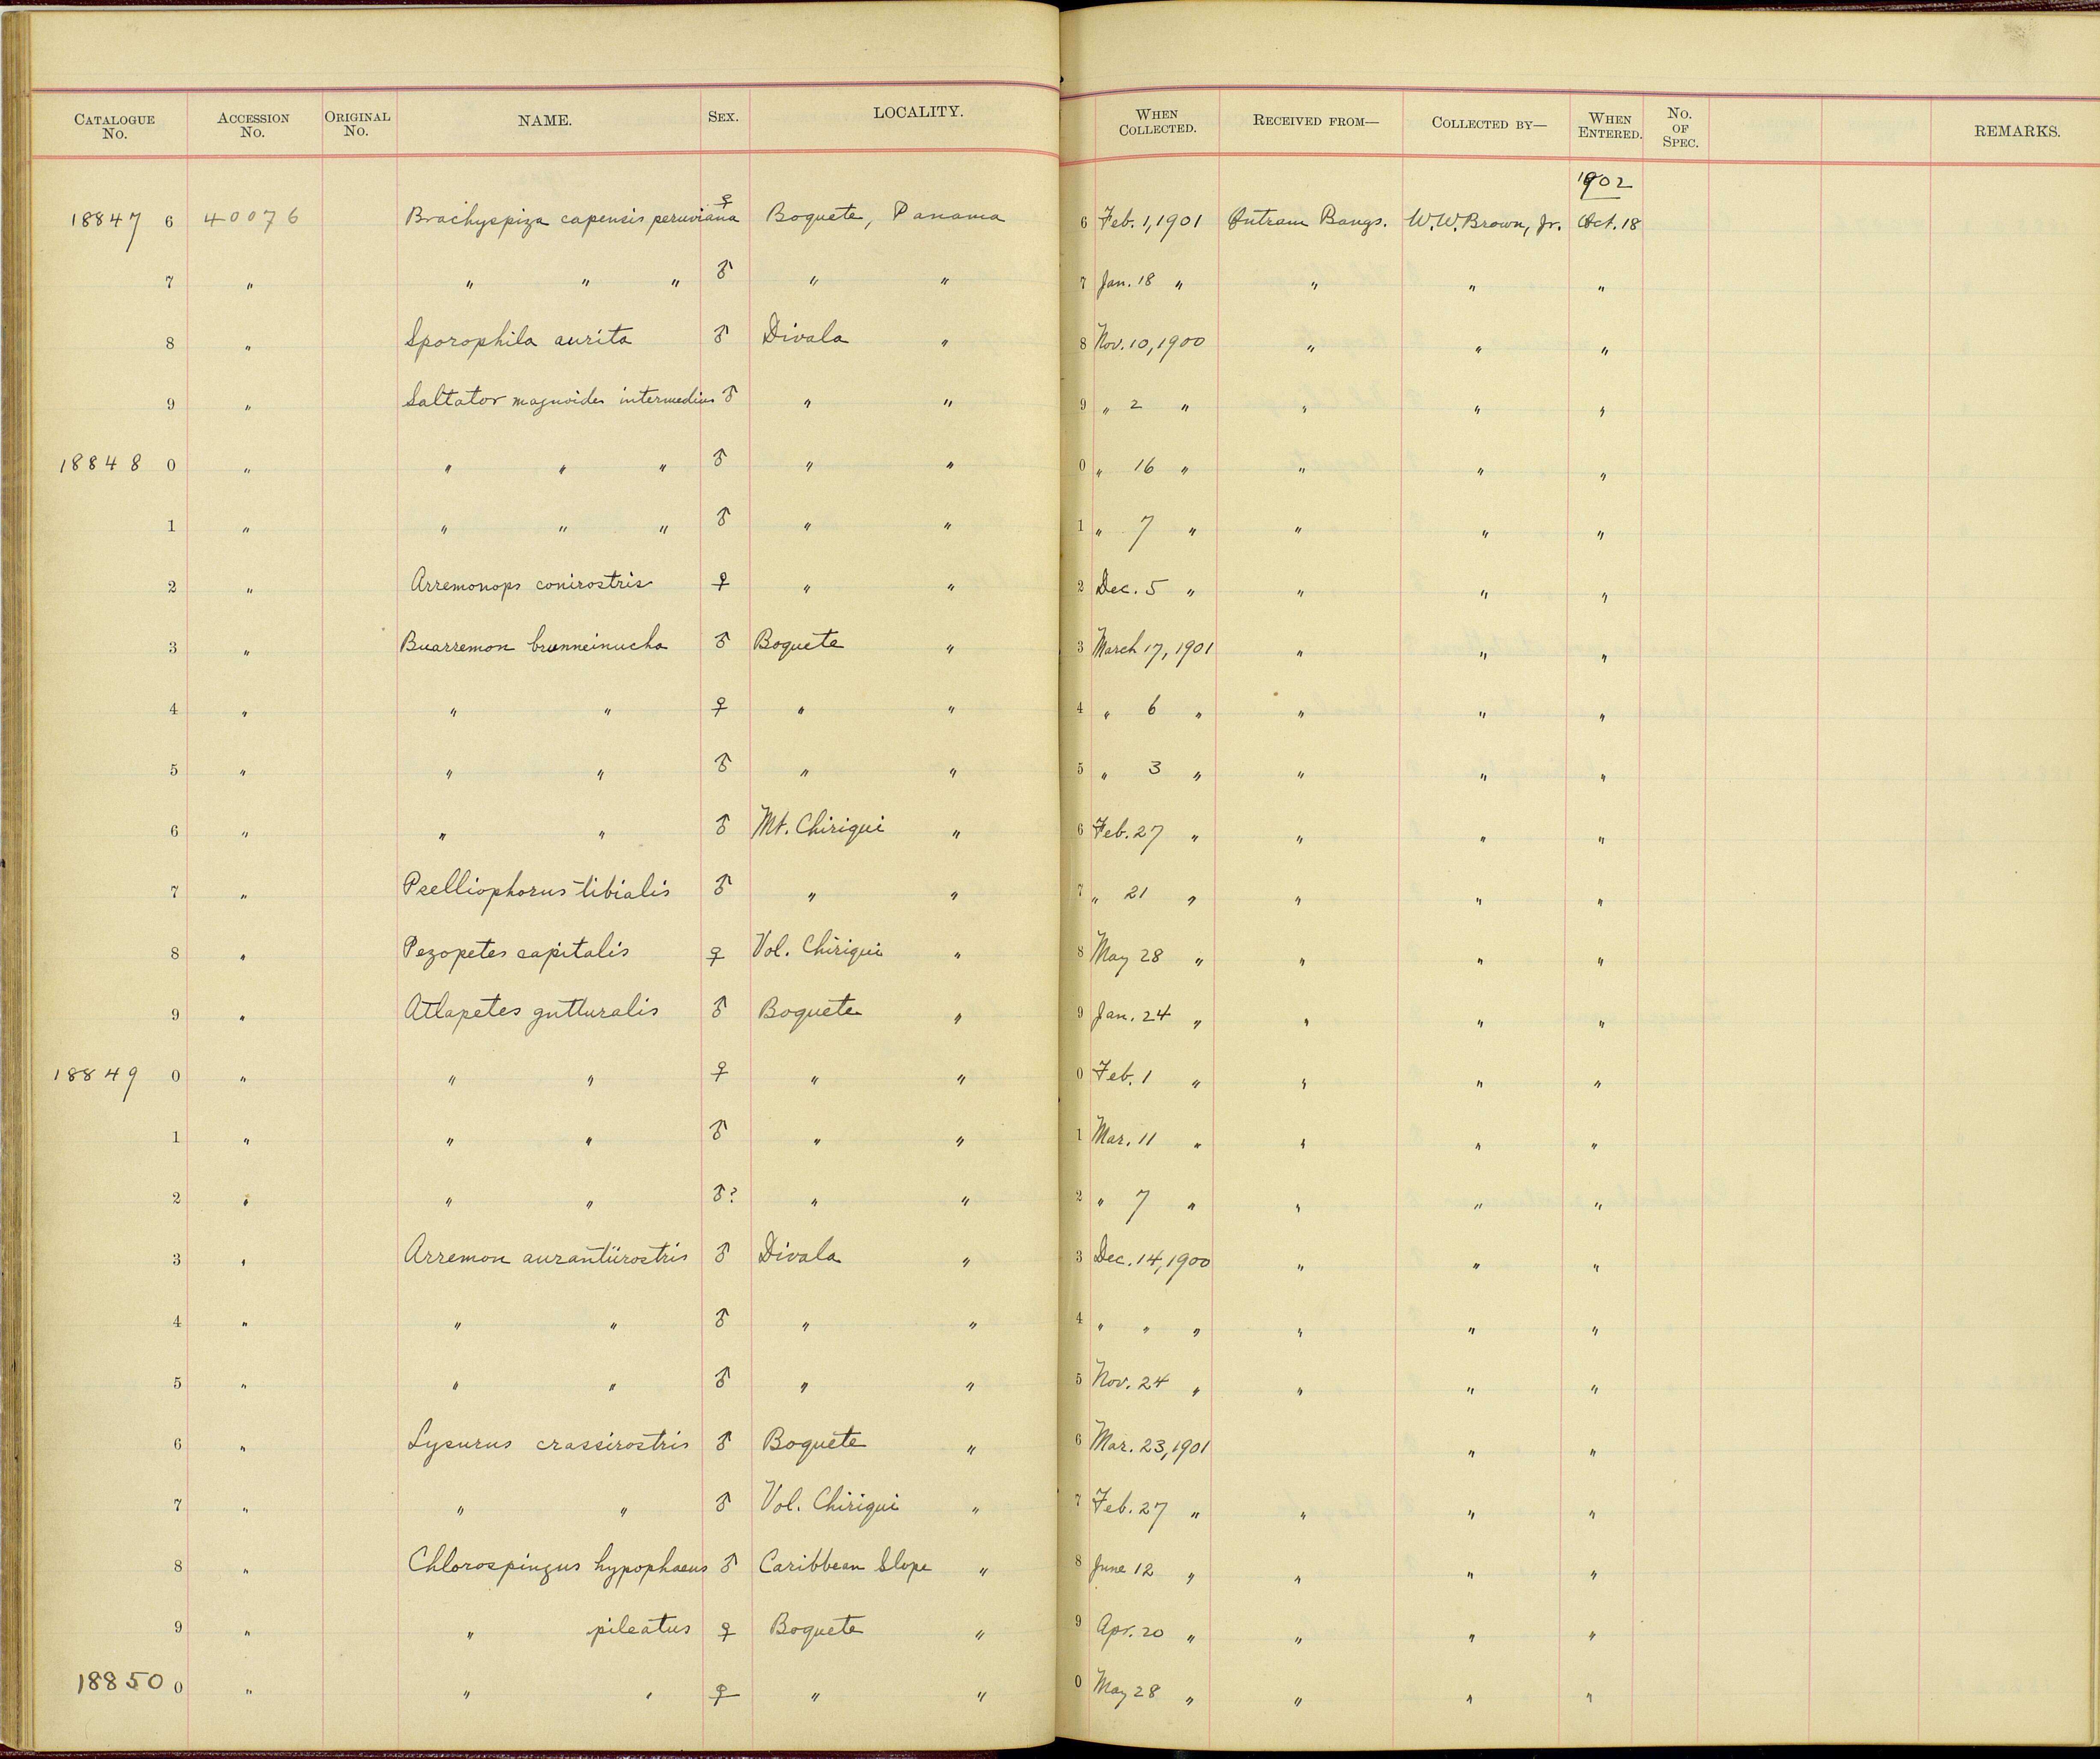 CATALOGUE No. ACCESSION No. ORIGINAL No. NAME. SEX. LOCALITY. WHEN COLLECTED. RECEIVED FROM— COLLECTED BY— WHEN ENTERED. No. OF SPEC. REMARKS.
1902
18847 6 40076 Brachyspiza capensis peruviana ♀ Boquete, Panama 6 Feb. 1, 1901 Outram Bangs. W.W. Brown, Jr. Oct. 18
7 " " " " ♂ " " 7 Jan. 18 " " " "
8 " Sporophila aurita ♂ Divala " 8 Nov. 10, 1900 " " "
9 " Saltator magnoides intermedius ♂ " " 9 " 2 " " " "
18848 0 " " " " ♂ " " 0 " 16 " " " "
1 " " " " ♂ " " 1 " 7 " " " "
2 " Arremonops conirostris ♀ " " 2 Dec. 5 " " " "
3 " Buarremon brunneinucha ♂ Boquete " 3 March 17, 1901 " " "
4 " " " ♀ " " 4 " 6 " " " "
5 " " " ♂ " " 5 " 3 " " " "
6 " " " ♂ Mt. Chiriqui " 6 Feb. 27 " " " "
7 " Pselliophorus tibialis ♂ " " 7 " 21 " " " "
8 " Pezopetes capitalis ♀ Vol. Chiriqui " 8 May 28 " " " "
9 " Atlapetes gutturalis ♂ Boquete " 9 Jan. 24 " " " "
18849 0 " " " ♀ " " 0 Feb. 1 " " " "
1 " " " ♂ " " 1 Mar. 11 " " " "
2 " " " ♂? " " 2 " 7 " " " "
3 " Arremon aurantiirostris ♂ Divala " 3 Dec. 14, 1900 " " "
4 " " " ♂ " " 4 " " " " " "
5 " " " ♂ " " 5 Nov. 24 " " " "
6 " Lysurus crassirostris ♂ Boquete " 6 Mar. 23, 1901 " "
7 " " " ♂ Vol. Chiriqui " 7 Feb. 27 " " " "
8 " Chlorospingus hypophaeus ♂ Caribbean Slope " 8 June 12 " " " "
9 " " pileatus ♀ Boquete " 9 Apr. 20 " " " "
18850 0 " " " ♀ " " 0 May 28 " " " "